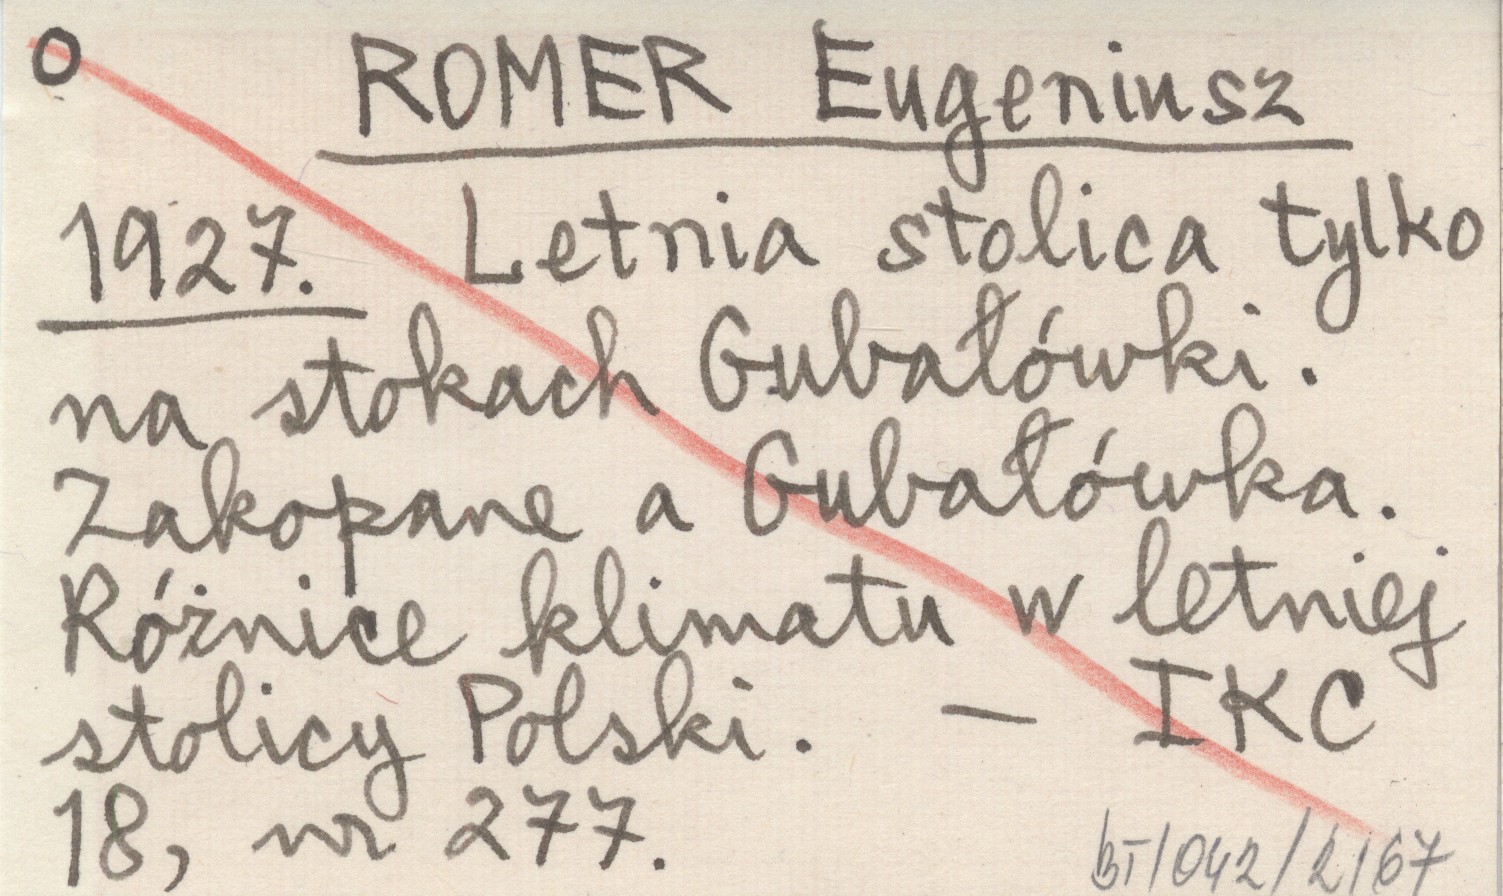 O ROMER Eugeniusz
1927. Letnia stolica tylko
na stokach Gubałówki.
Zakopane a Gubałówka.
Różnice klimatu w letniej
stolicy Polski. — IKC
18, nr 277.
BT/042/2/67